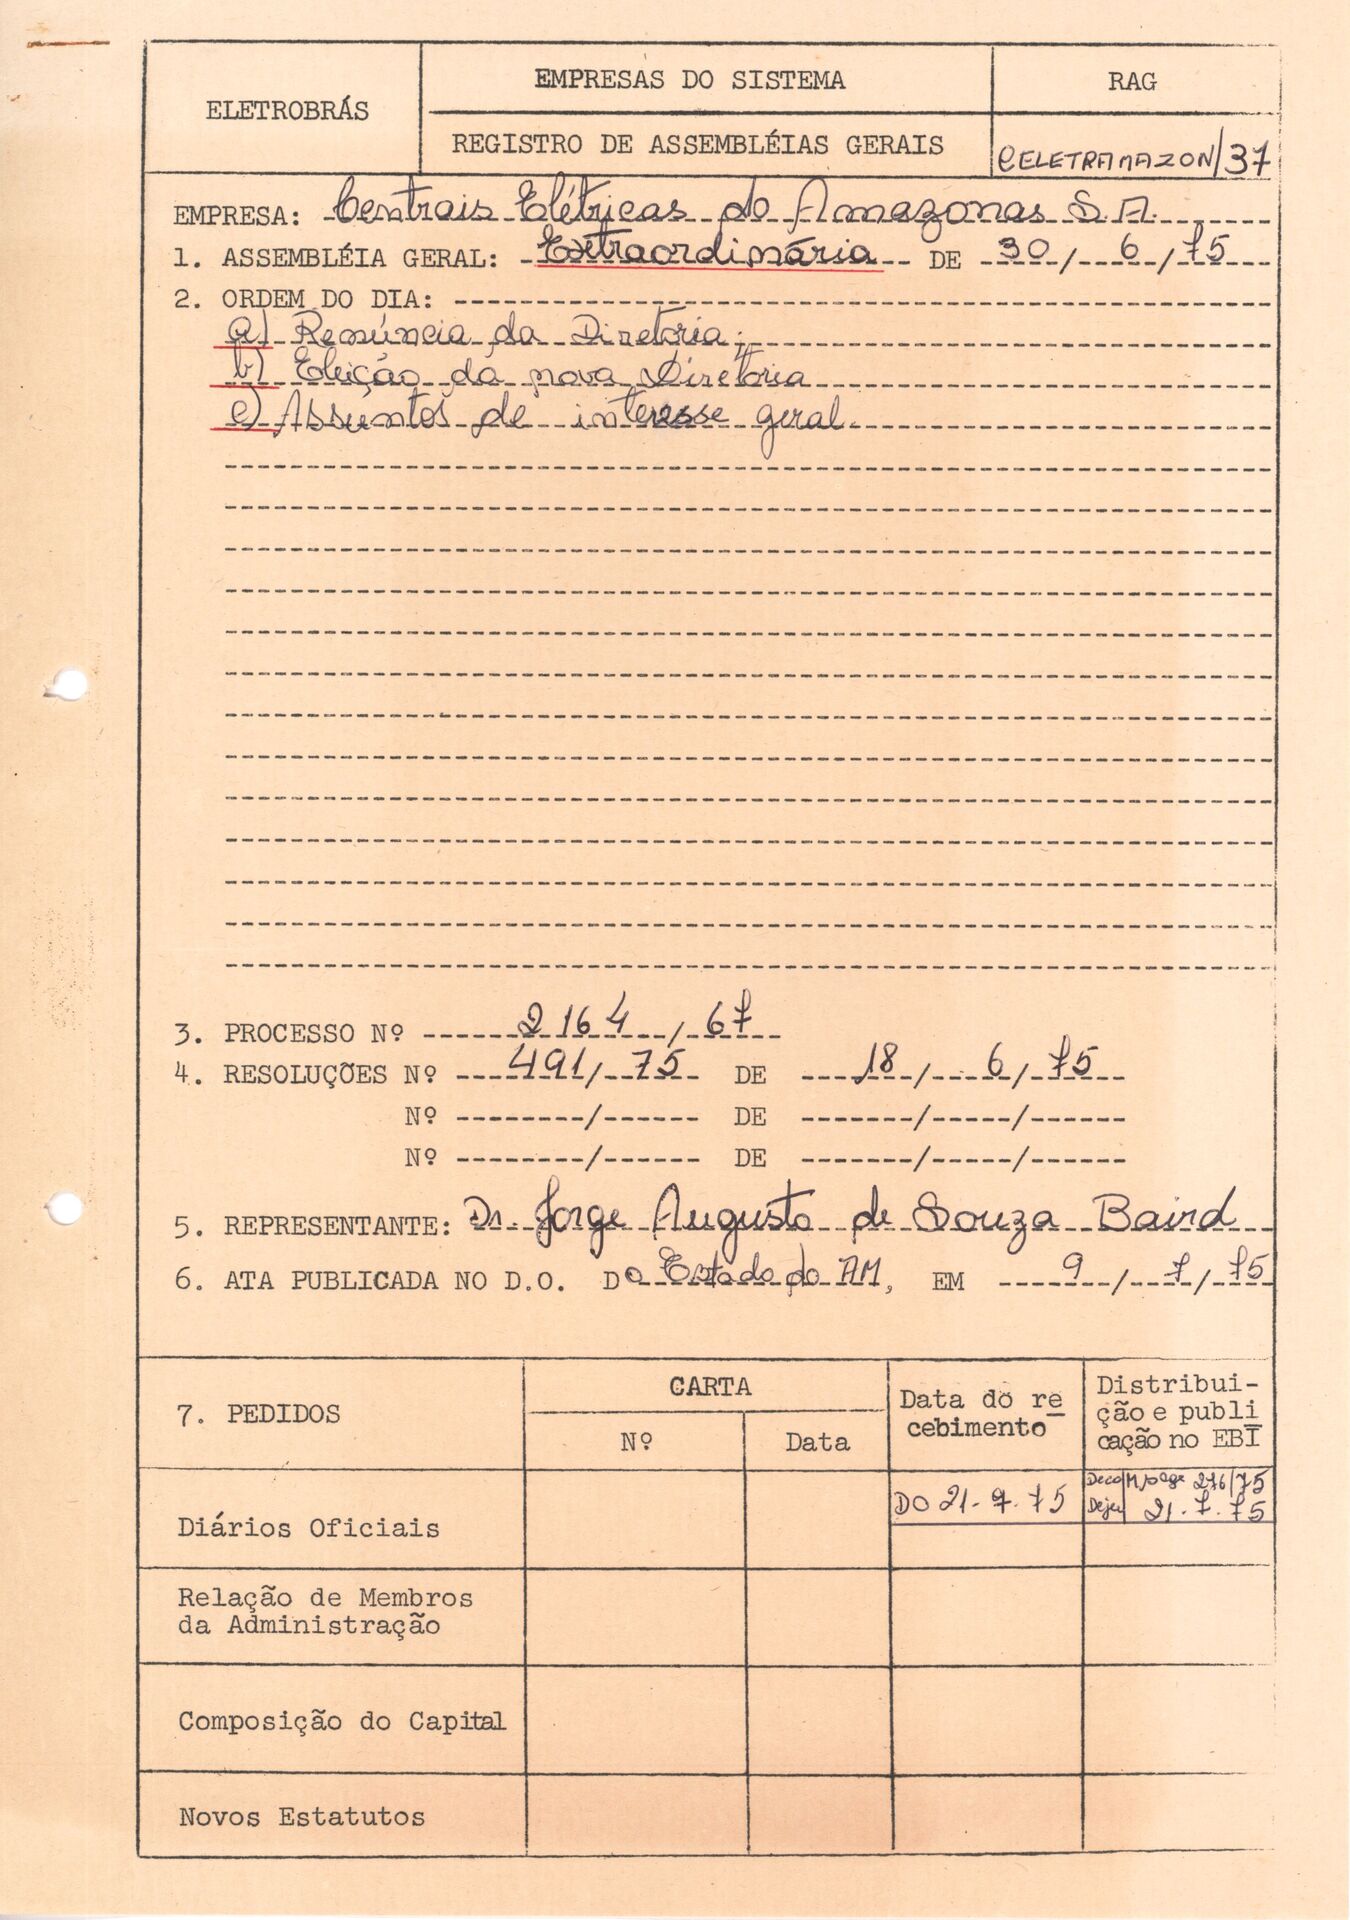 ELETROBRÁS
EMPRESAS DO SISTEMA
REGISTRO DE ASSEMBLÉIAS GERAIS
RAG
CELETRAMAZON/37
EMPRESA: Centrais Elétricas do Amazonas S.A.
1. ASSEMBLÉIA GERAL: Extraordinária DE 30/6/75
2. ORDEM DO DIA:
a) Renúncia da Diretoria;
b) Eleição da nova Diretoria
c) Assuntos de interesse geral.
3. PROCESSO Nº 2164/67
4. RESOLUÇÕES Nº 491/75 DE 18/6/75
Nº / DE / /
Nº / DE / /
5. REPRESENTANTE: Dr. Jorge Augusto de Souza Baird
6. ATA PUBLICADA NO D.O. Do Estado do AM, EM 9/7/75
7. PEDIDOS
CARTA
Nº
Data
Data do re
cebimento
Distribui-
ção e publi
cação no EBI
Diários Oficiais
DO 21.7.75
276/75
21.7.75
Relação de Membros
da Administração
Composição do Capital
Novos Estatutos